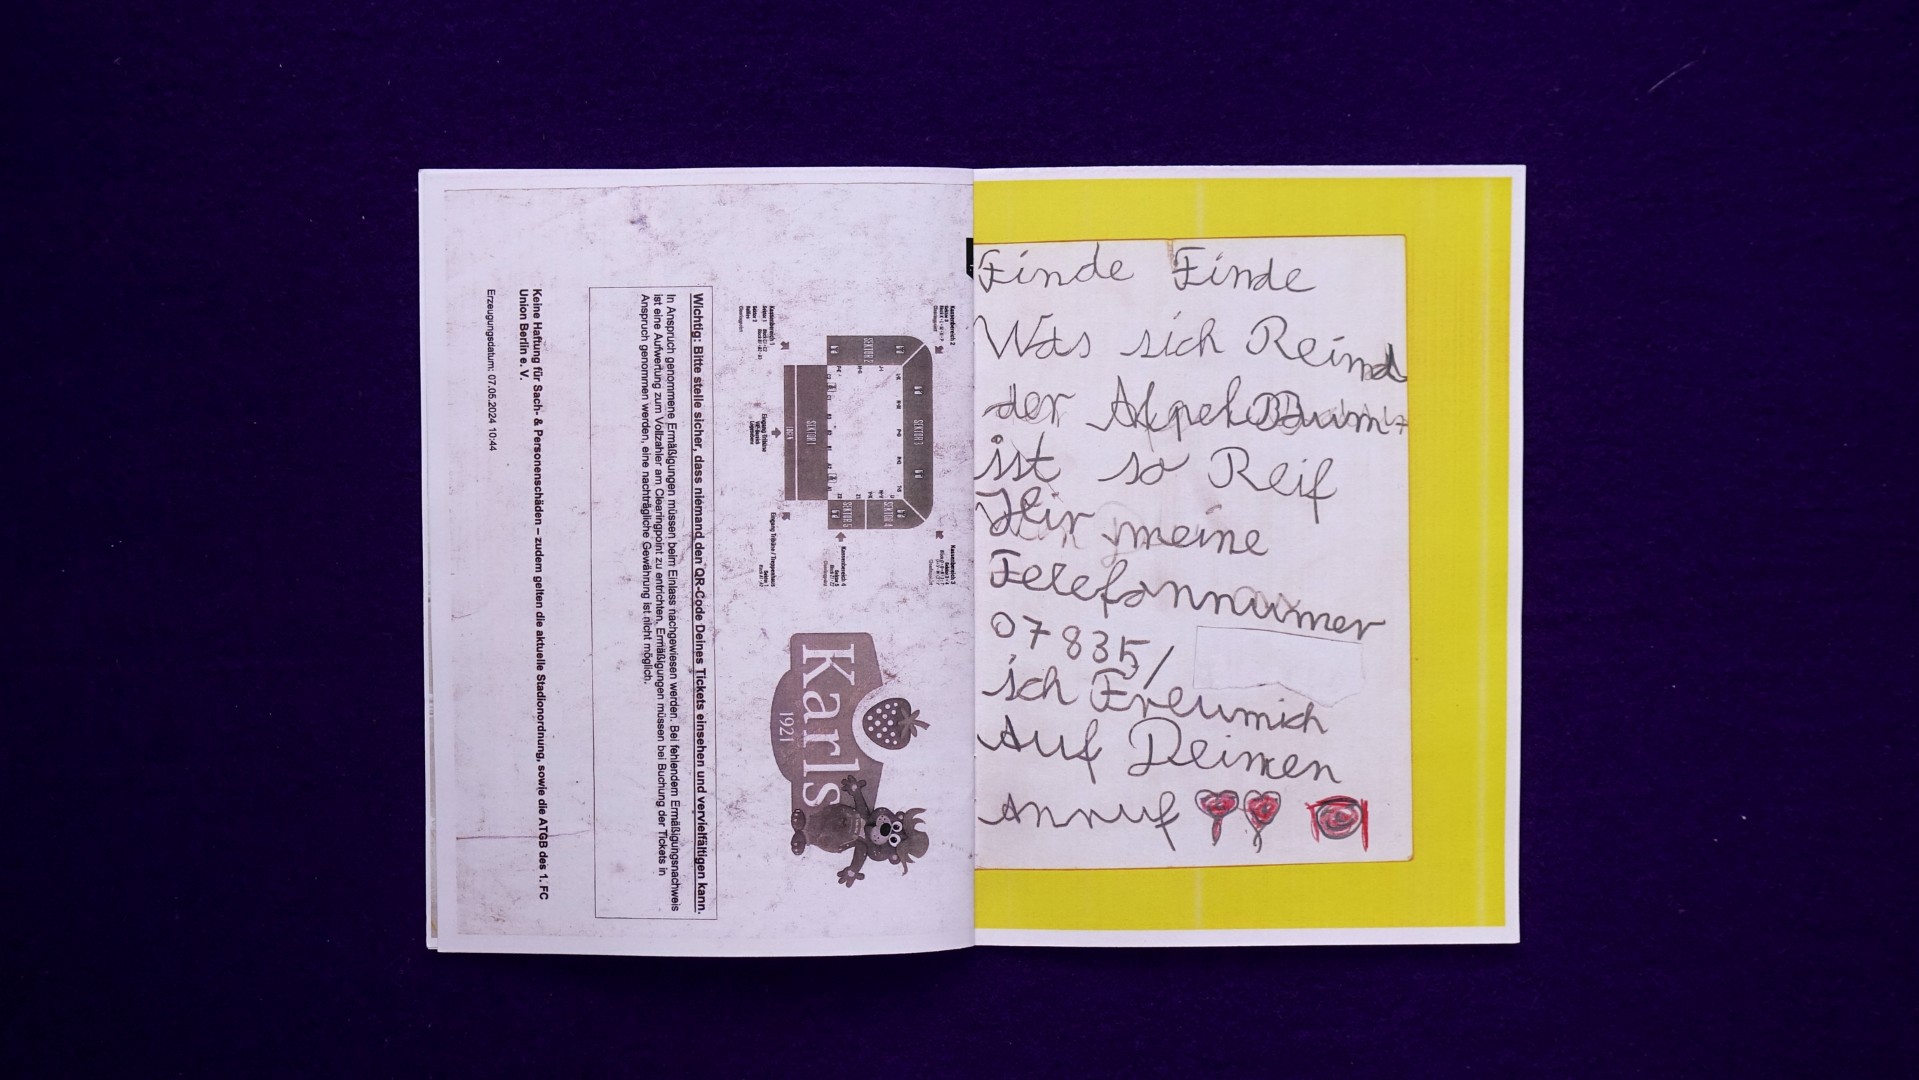 Wichtig: Bitte stelle sicher, dass niemand den QR-Code Deines Tickets einsehen und vervielfältigen kann.
In Anspruch genommene Ermäßigungen müssen beim Einlass nachgewiesen werden. Bei fehlendem Ermäßigungsnachweis
ist eine Aufwertung zum Vollzahler am Clearingpoint zu entrichten. Ermäßigungen müssen bei Buchung der Tickets in
Anspruch genommen werden, eine nachträgliche Gewährung ist nicht möglich.
Keine Haftung für Sach- & Personenschäden – zudem gelten die aktuelle Stadionordnung, sowie die ATGB des 1. FC
Union Berlin e. V.
Erzeugungsdatum: 07.05.2024 10:44
Kassenbereich 2
Kassenbereich 3
Kassenbereich 1
Kassenbereich 4
SEKTOR 2
SEKTOR 3
SEKTOR 4
SEKTOR 5
SEKTOR 1
LOGEN
Eingang Tribüne
Eingang Tribüne / Treppenhaus
Karls
1921
Finde Finde
Was sich Reimd
der
ist so Reif
Hir meine
Telefonnumer
07835/
ich Freumich
Auf Deinen
Annuf